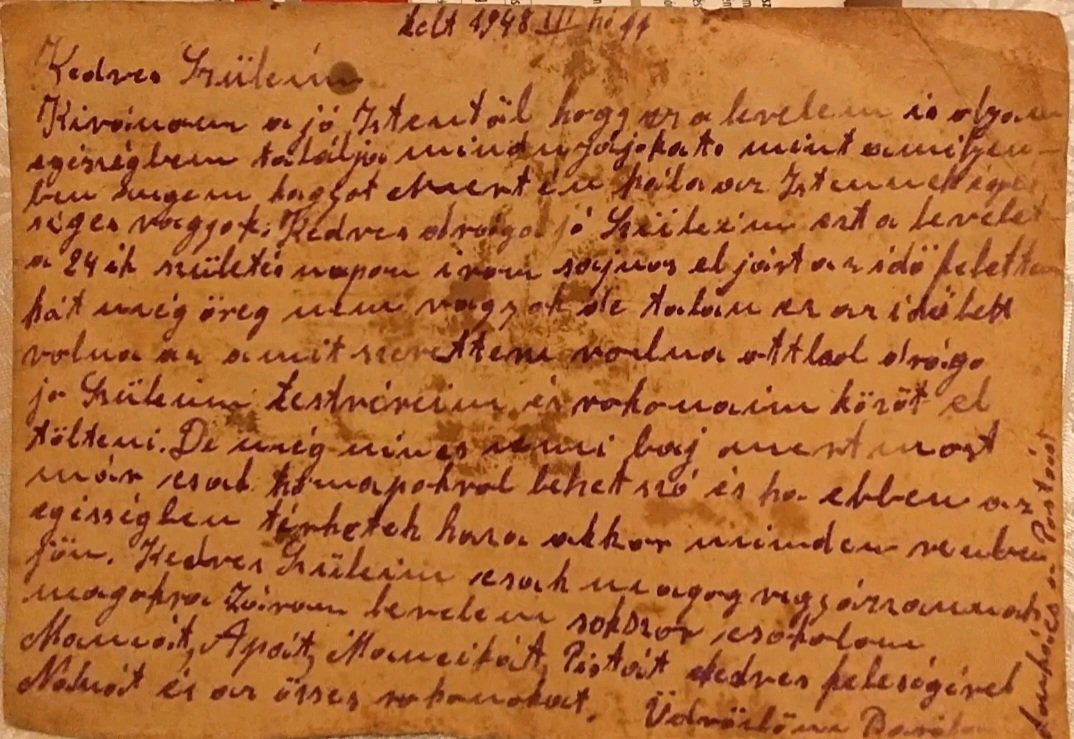 kelt 1948 III hó 11
Kedves Szüleim
Kivánom a jó Istentöl hogy ez a levelem is olyan
egésségben találja mindnyájokat mint amilyen-
ben engem hagyot el mert én hála az Istennek
séges vagyok. Kedves drága jó Szüleim ezt a levelet
a 24 ik születés napon irom sajnos el járt az idö felettem
hát még öreg nem vagyok de talán ez az idö lett
volna az amit szerettem volna otthol drága
jo Szüleim testvéreim és rokonaim közöt el
tölteni. De még nincs semi baj mert most
már csak hónapokrol lehet szó és ha ebben az
egésségben térhetek haza akkor minden renben
jön. Kedves Szüleim csak magog vigyázzannak
magokra Zárom levelem sokszor csokolom
Mamát, Apát, Mancikát, Pistát kedves feleségével
és az össes rokonokat. Üdvözlöm
a Postást